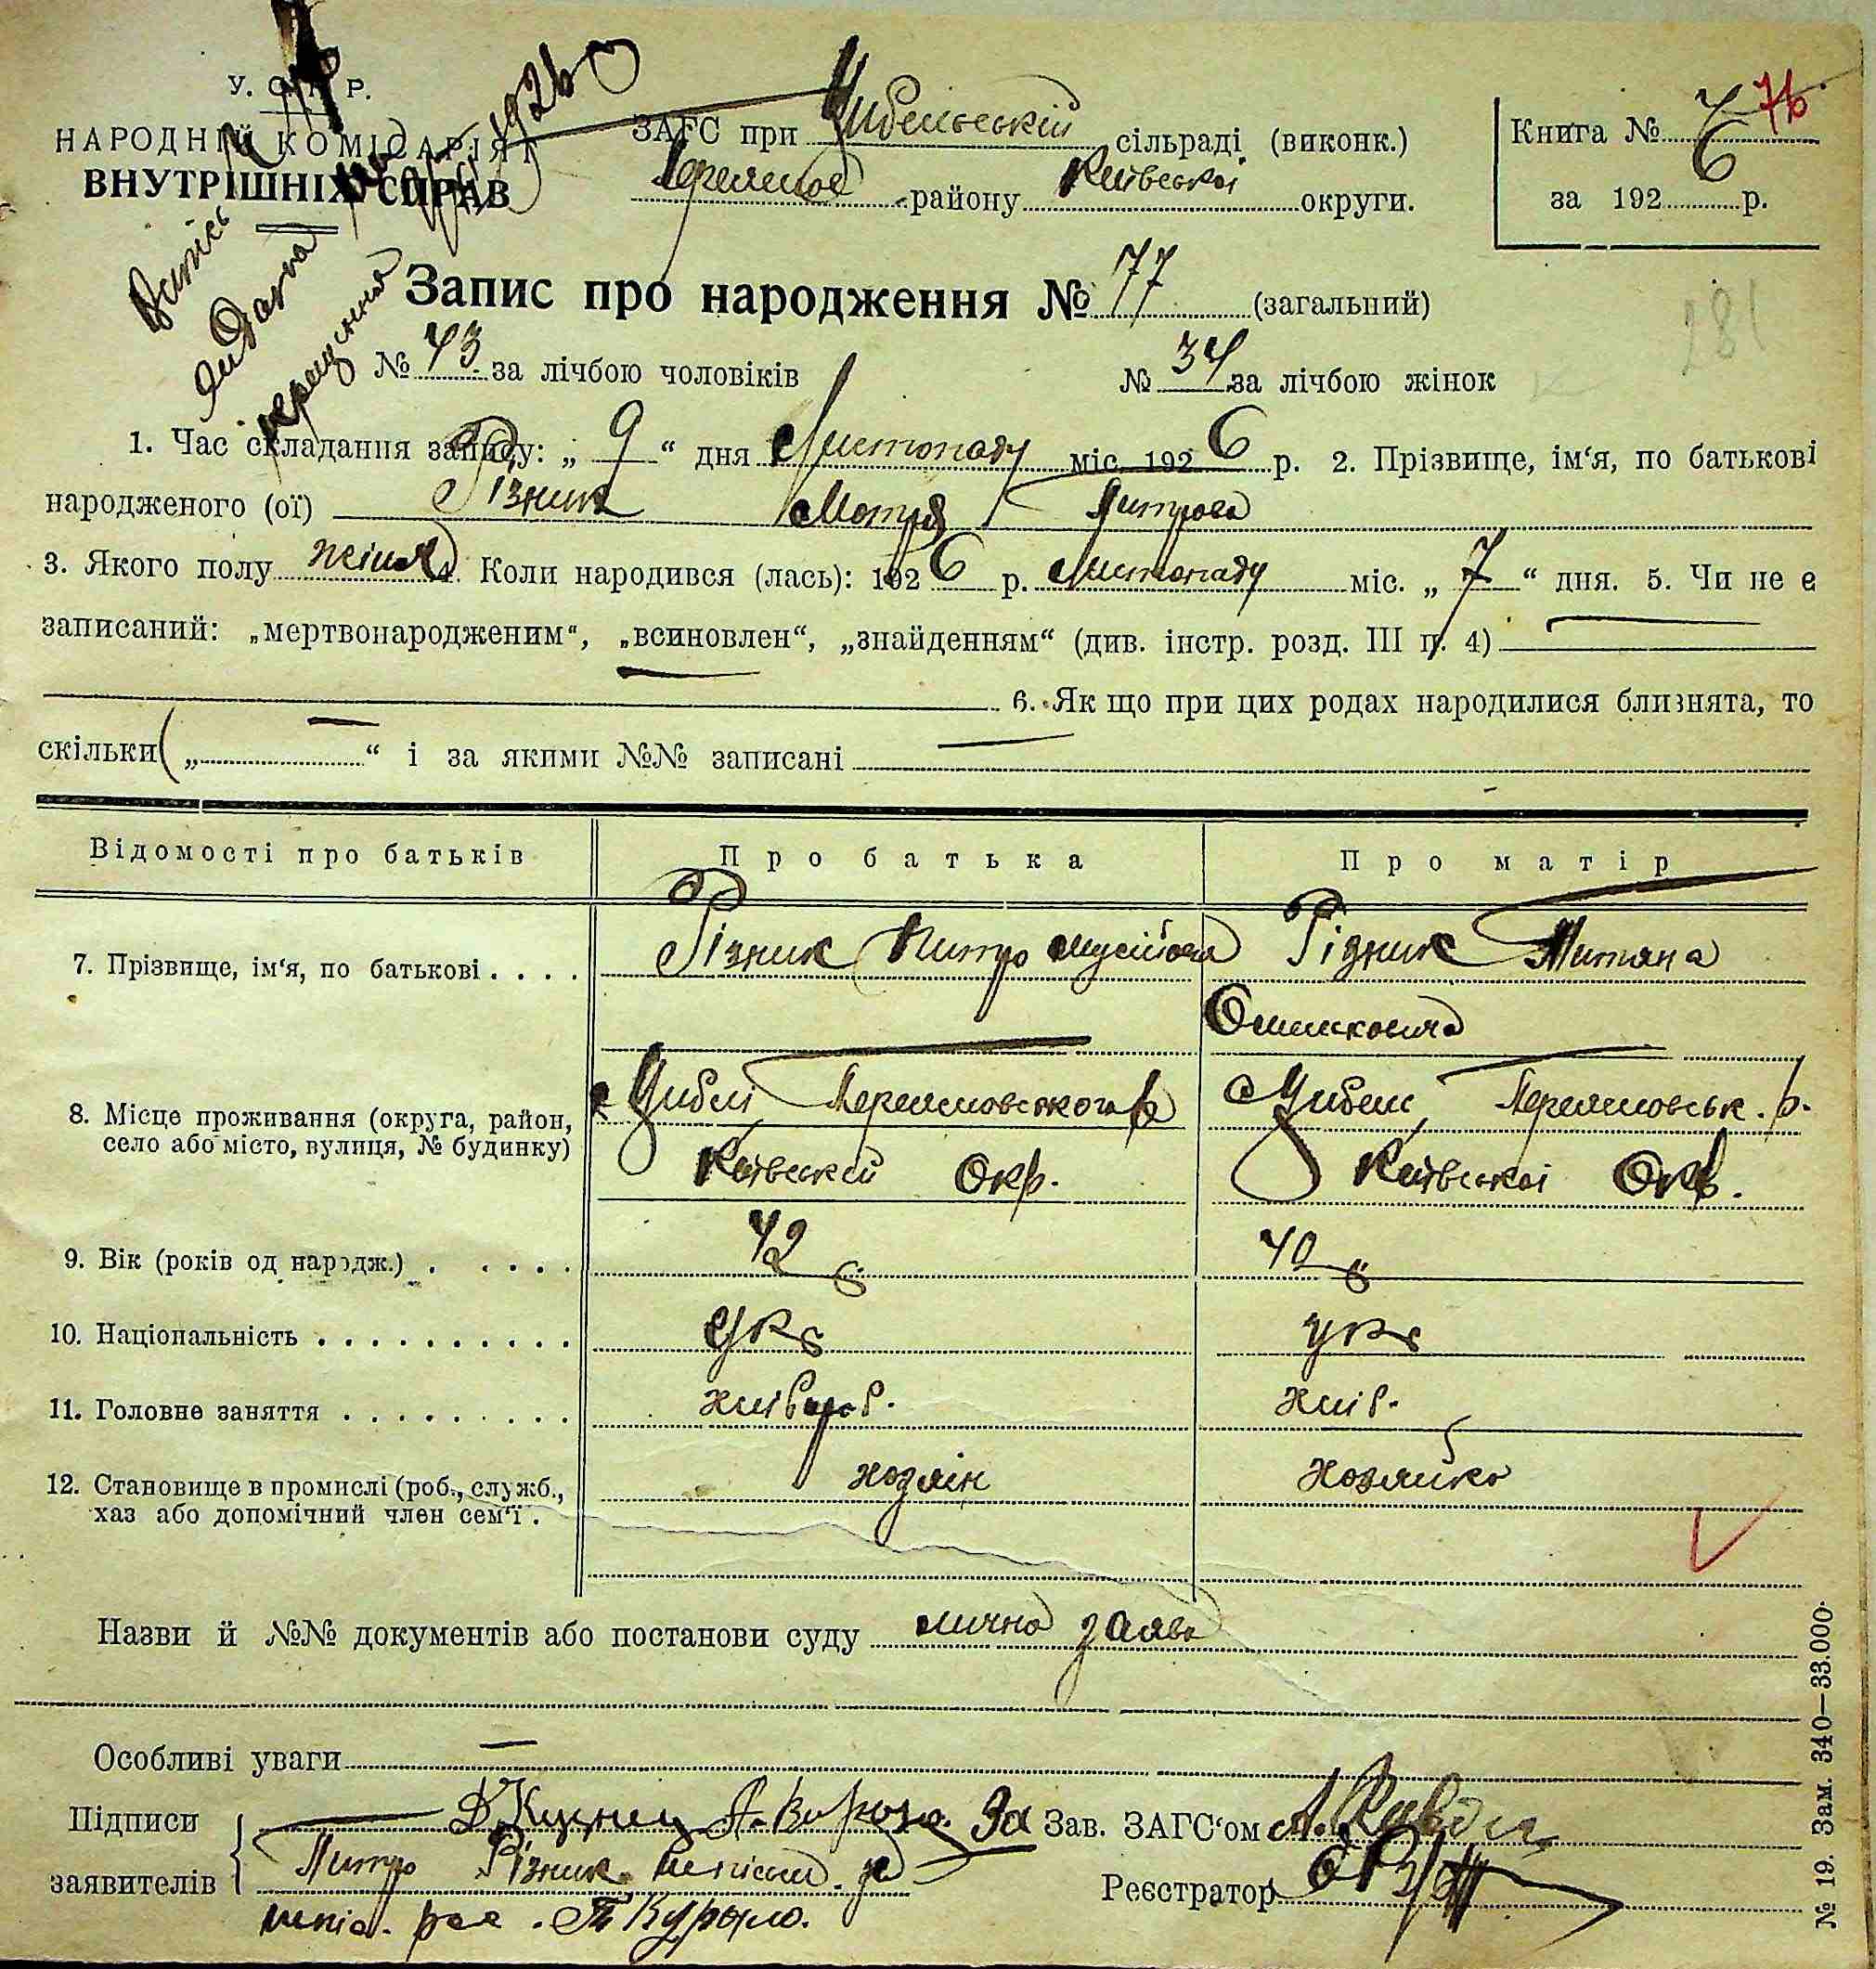 У. С. Р. Р.
НАРОДНІЙ КОМІСАРІЯТ
ВНУТРІШНІХ СПРАВ
ЗАГС при Цибельській сільраді (виконк.)
району Київської округи.
Книга № 7 76
за 1926 р.
Витісь
видана
1926
281
Запис про народження № 77 (загальний)
№ 43 за лічбою чоловіків № 34 за лічбою жінок
1. Час складання запису: „ 9 “ дня Листопаду міс. 1926 р. 2. Прізвище, ім‘я, по батькові
народженого (ої) Різник Мотря Питрова
3. Якого полу жіноч 4. Коли народився (лась): 1926 р. Листопаду міс. „ 7 “ дня. 5. Чи не є
записаний: „мертвонародженим“, „всиновлен“, „знайденням“ (див. інстр. розд. III п. 4)
6. Як що при цих родах народилися близнята, то
скільки „ “ і за якими №№ записані
Відомості про батьків Про батька Про матір
7. Прізвище, ім‘я, по батькові . . . . Різник Питро Мусійович Різник Титяна
8. Місце проживання (округа, район, с Цибелі Переясловського р с Цибелі Переясловськ. р.
село або місто, вулиця, № будинку) Київської Окр. Київської Окр.
9. Вік (років од народж.) . . . . . 42 40
10. Національність . . . . . . . . . . укр укр
11. Головне заняття . . . . . . . . . хлібороб. хліб.
12. Становище в промислі (роб., служб., хозяін хозяйка
хаз або допомічний член сем‘ї .
Назви й №№ документів або постанови суду лична заява
Особливі уваги
Підписи Зав. ЗАГС‘ом
заявителів Питро Різник
Реєстратор
№ 19. Зам. 340—33.000.